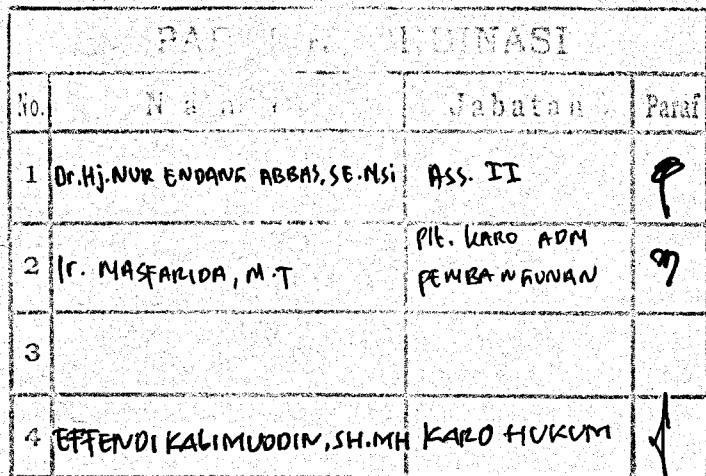 PARAF KOORDINASI
No. Nama Jabatan Paraf
1 Dr.Hj.NUR ENDANG ABBAS, SE.MSi ASS. II
2 Ir. MASFARIDA, M.T Plt. KARO ADM PEMBANGUNAN
3
4 EFFENDI KALIMUDDIN, SH.MH KARO HUKUM